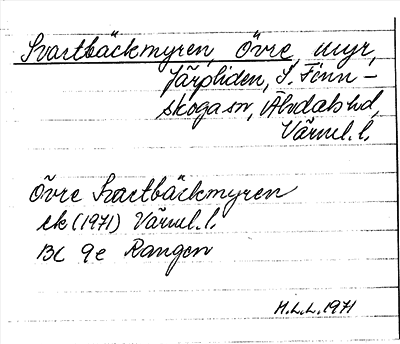 Svartbäckmyren, Övre, myr,
Järpliden, S. Finn-
skoga sn, Älvdals hd,
Värml. l.
Övre Svartbäckmyren
ek (1971) Värml. l.
BL 9e Rangen
H.L.L. 1971